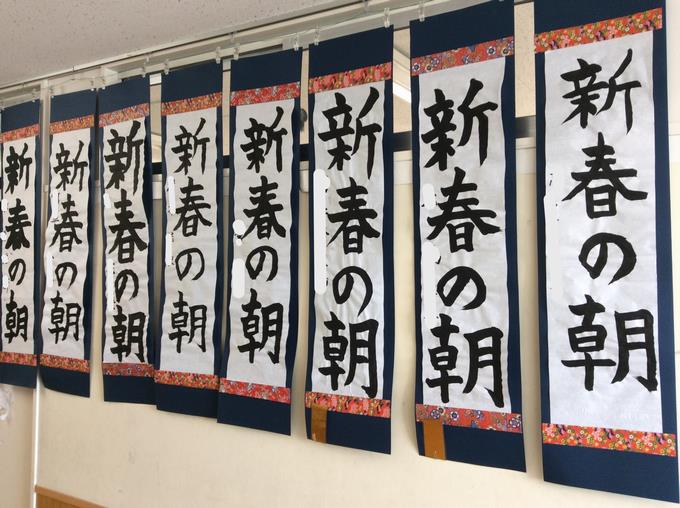 新春の朝
新春の朝
新春の朝
新春の朝
新春の朝
新春の朝
新春の朝
新春の朝